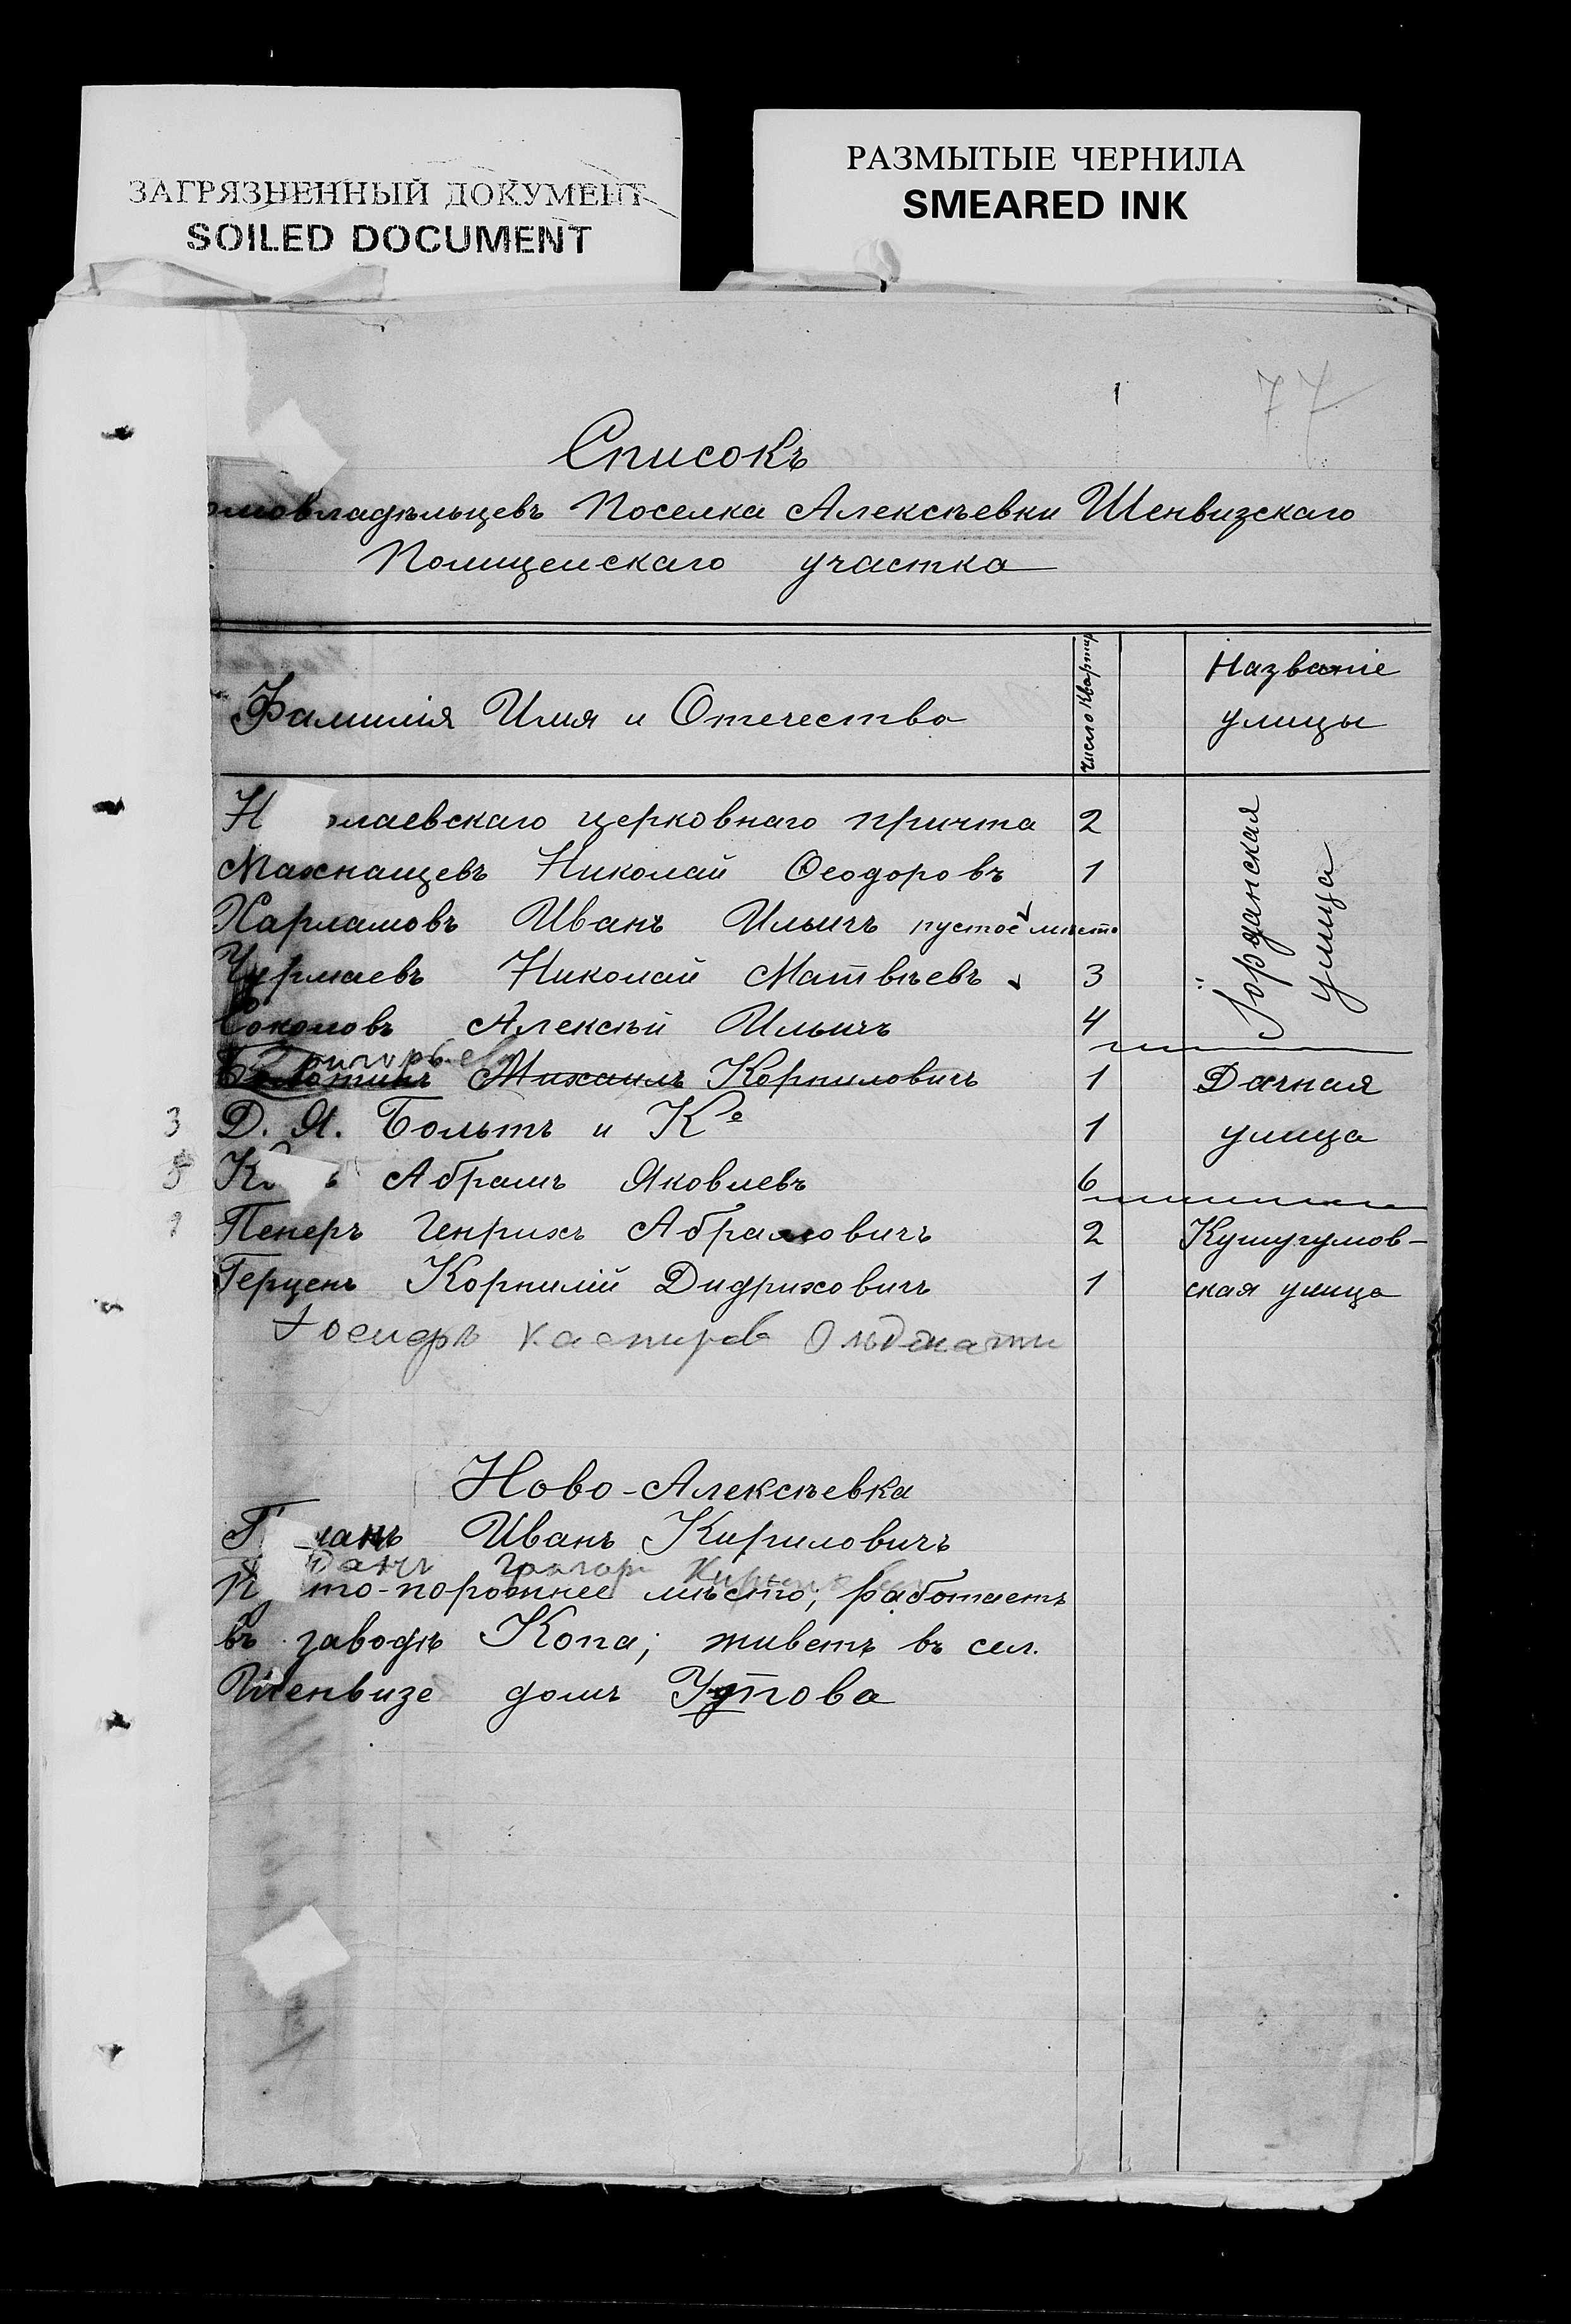 ЗАГРЯЗНЕННЫЙ ДОКУМЕНТ
SOILED DOCUMENT
РАЗМЫТЫЕ ЧЕРНИЛА
SMEARED INK
77
Списокъ
омовладѣльцевъ Поселка Алексѣевки Шенвизскаго
Полицейскаго участка
Фамилія Имя и Отечество
Число квартир
Названіе
улицы
Н олаевскаго церковнаго причта 2
Махнацевъ Николай Ѳеодоровъ 1
Харламовъ Иванъ Ильичъ пустое мѣсто
Чурмаевъ Николай Матвѣевъ 3
Соколовъ Алексѣй Ильичъ 4
Іорданская
улица
Михаилъ Корниловичъ 1 Дачная
3 Д. Я. Больтъ и Ко 1 улица
Абрамъ Яковлевъ 6
1 Пенеръ Генрихъ Абрамовичъ 2 Кушугумов-
Герценъ Корнилій Дидриховичъ 1 ская улица
Ново-Алексѣевка
Иванъ Кириловичъ
то-порожнее мѣсто; работаетъ
въ заводѣ Копа; живетъ въ сел.
Шенвизе домъ